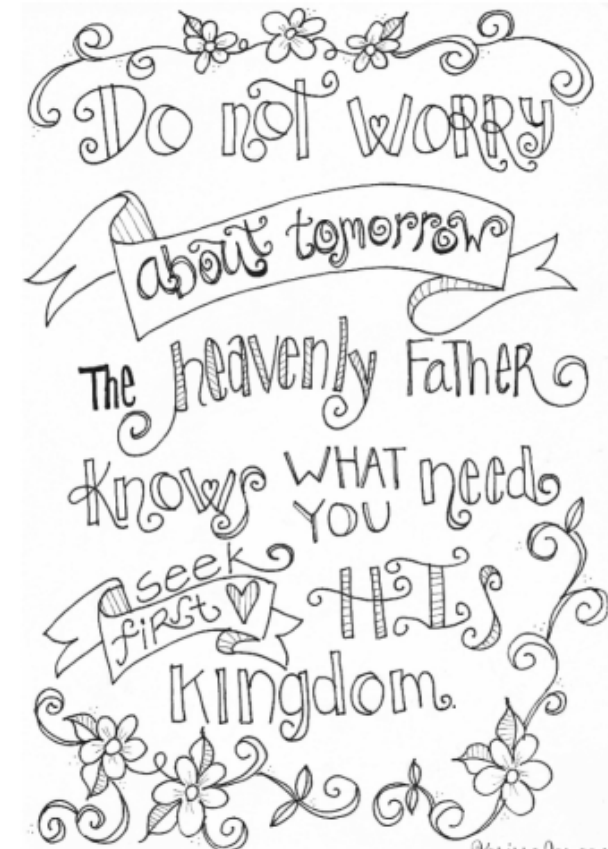 Do not WORRY
about tomorrow
The heavenly FaTHeR
Knows WHAT YOU need
seek
first HIS
Kingdom.